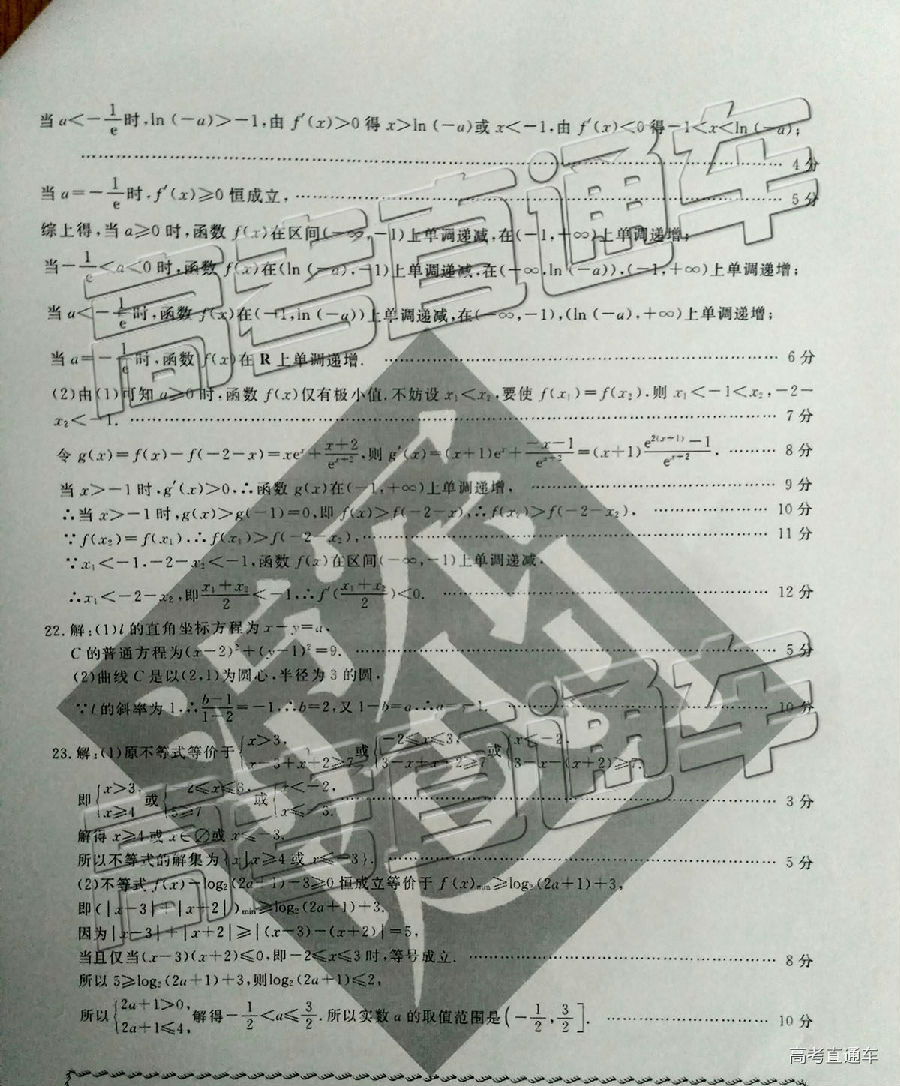 当a<-1/e时,ln (-a)>-1,由 f′(x)>0得x>ln (-a)或x<-1,由 f′(x)<0得-1<x<ln (-a);
4分
当a=-1/e时,f′(x)≥0恒成立, 5分
综上得,当a≥0时,函数 f(x)在区间(-∞,-1)上单调递减,在(-1,+∞)上单调递增;
当-1/e<a<0时,函数 f(x)在(ln (-a),-1)上单调递减,在(-∞,ln (-a)),(-1,+∞)上单调递增;
当a<-1/e时,函数 f(x)在(-1,ln (-a))上单调递减,在(-∞,-1),(ln (-a),+∞)上单调递增;
当a=-1/e时,函数 f(x)在R上单调递增. 6分
(2)由(1)可知a≥0时,函数 f(x)仅有极小值.不妨设x₁<x₂,要使 f(x₁)=f(x₂),则x₁<-1<x₂,-2-
x₂<-1. 7分
令g(x)=f(x)-f(-2-x)=xeˣ+(x+2)/e^(x+2),则g′(x)=(x+1)eˣ+(-x-1)/e^(x+2)=(x+1)(e^(2(x+1))-1)/e^(x+2), 8分
当x>-1时,g′(x)>0,∴函数g(x)在(-1,+∞)上单调递增, 9分
∴当x>-1时,g(x)>g(-1)=0,即 f(x)>f(-2-x),∴f(x₂)>f(-2-x₂), 10分
∵f(x₂)=f(x₁),∴f(x₁)>f(-2-x₂), 11分
∵x₁<-1,-2-x₂<-1,函数 f(x)在区间(-∞,-1)上单调递减,
∴x₁<-2-x₂,即(x₁+x₂)/2<-1,∴f′((x₁+x₂)/2)<0. 12分
22.解:(1)l的直角坐标方程为x-y=a,
C的普通方程为(x-2)²+(y-1)²=9. 5分
(2)曲线C是以(2,1)为圆心,半径为3的圆,
∵l的斜率为1,∴(b-1)/(1-2)=-1,∴b=2,又1-b=a,∴a=-1. 10分
23.解:(1)原不等式等价于{x>3, x-3+x+2≥7 或{-2≤x≤3, 3-x+x+2≥7 或{x<-2, 3-x-(x+2)≥7,
即{x>3, x≥4 或{-2≤x≤3, 5≥7 或{x<-2, x≤-3. 3分
解得x≥4或x∈∅或x≤-3,
所以不等式的解集为{x|x≥4或x≤-3}. 5分
(2)不等式 f(x)-log₂(2a+1)-3≥0恒成立等价于 f(x)min≥log₂(2a+1)+3,
即(|x-3|+|x+2|)min≥log₂(2a+1)+3.
因为|x-3|+|x+2|≥|(x-3)-(x+2)|=5,
当且仅当(x-3)(x+2)≤0,即-2≤x≤3时,等号成立. 8分
所以5≥log₂(2a+1)+3,则log₂(2a+1)≤2,
所以{2a+1>0, 2a+1≤4, 解得-1/2<a≤3/2.所以实数a的取值范围是(-1/2,3/2]. 10分
高考直通车
高考直通车
高考直通车